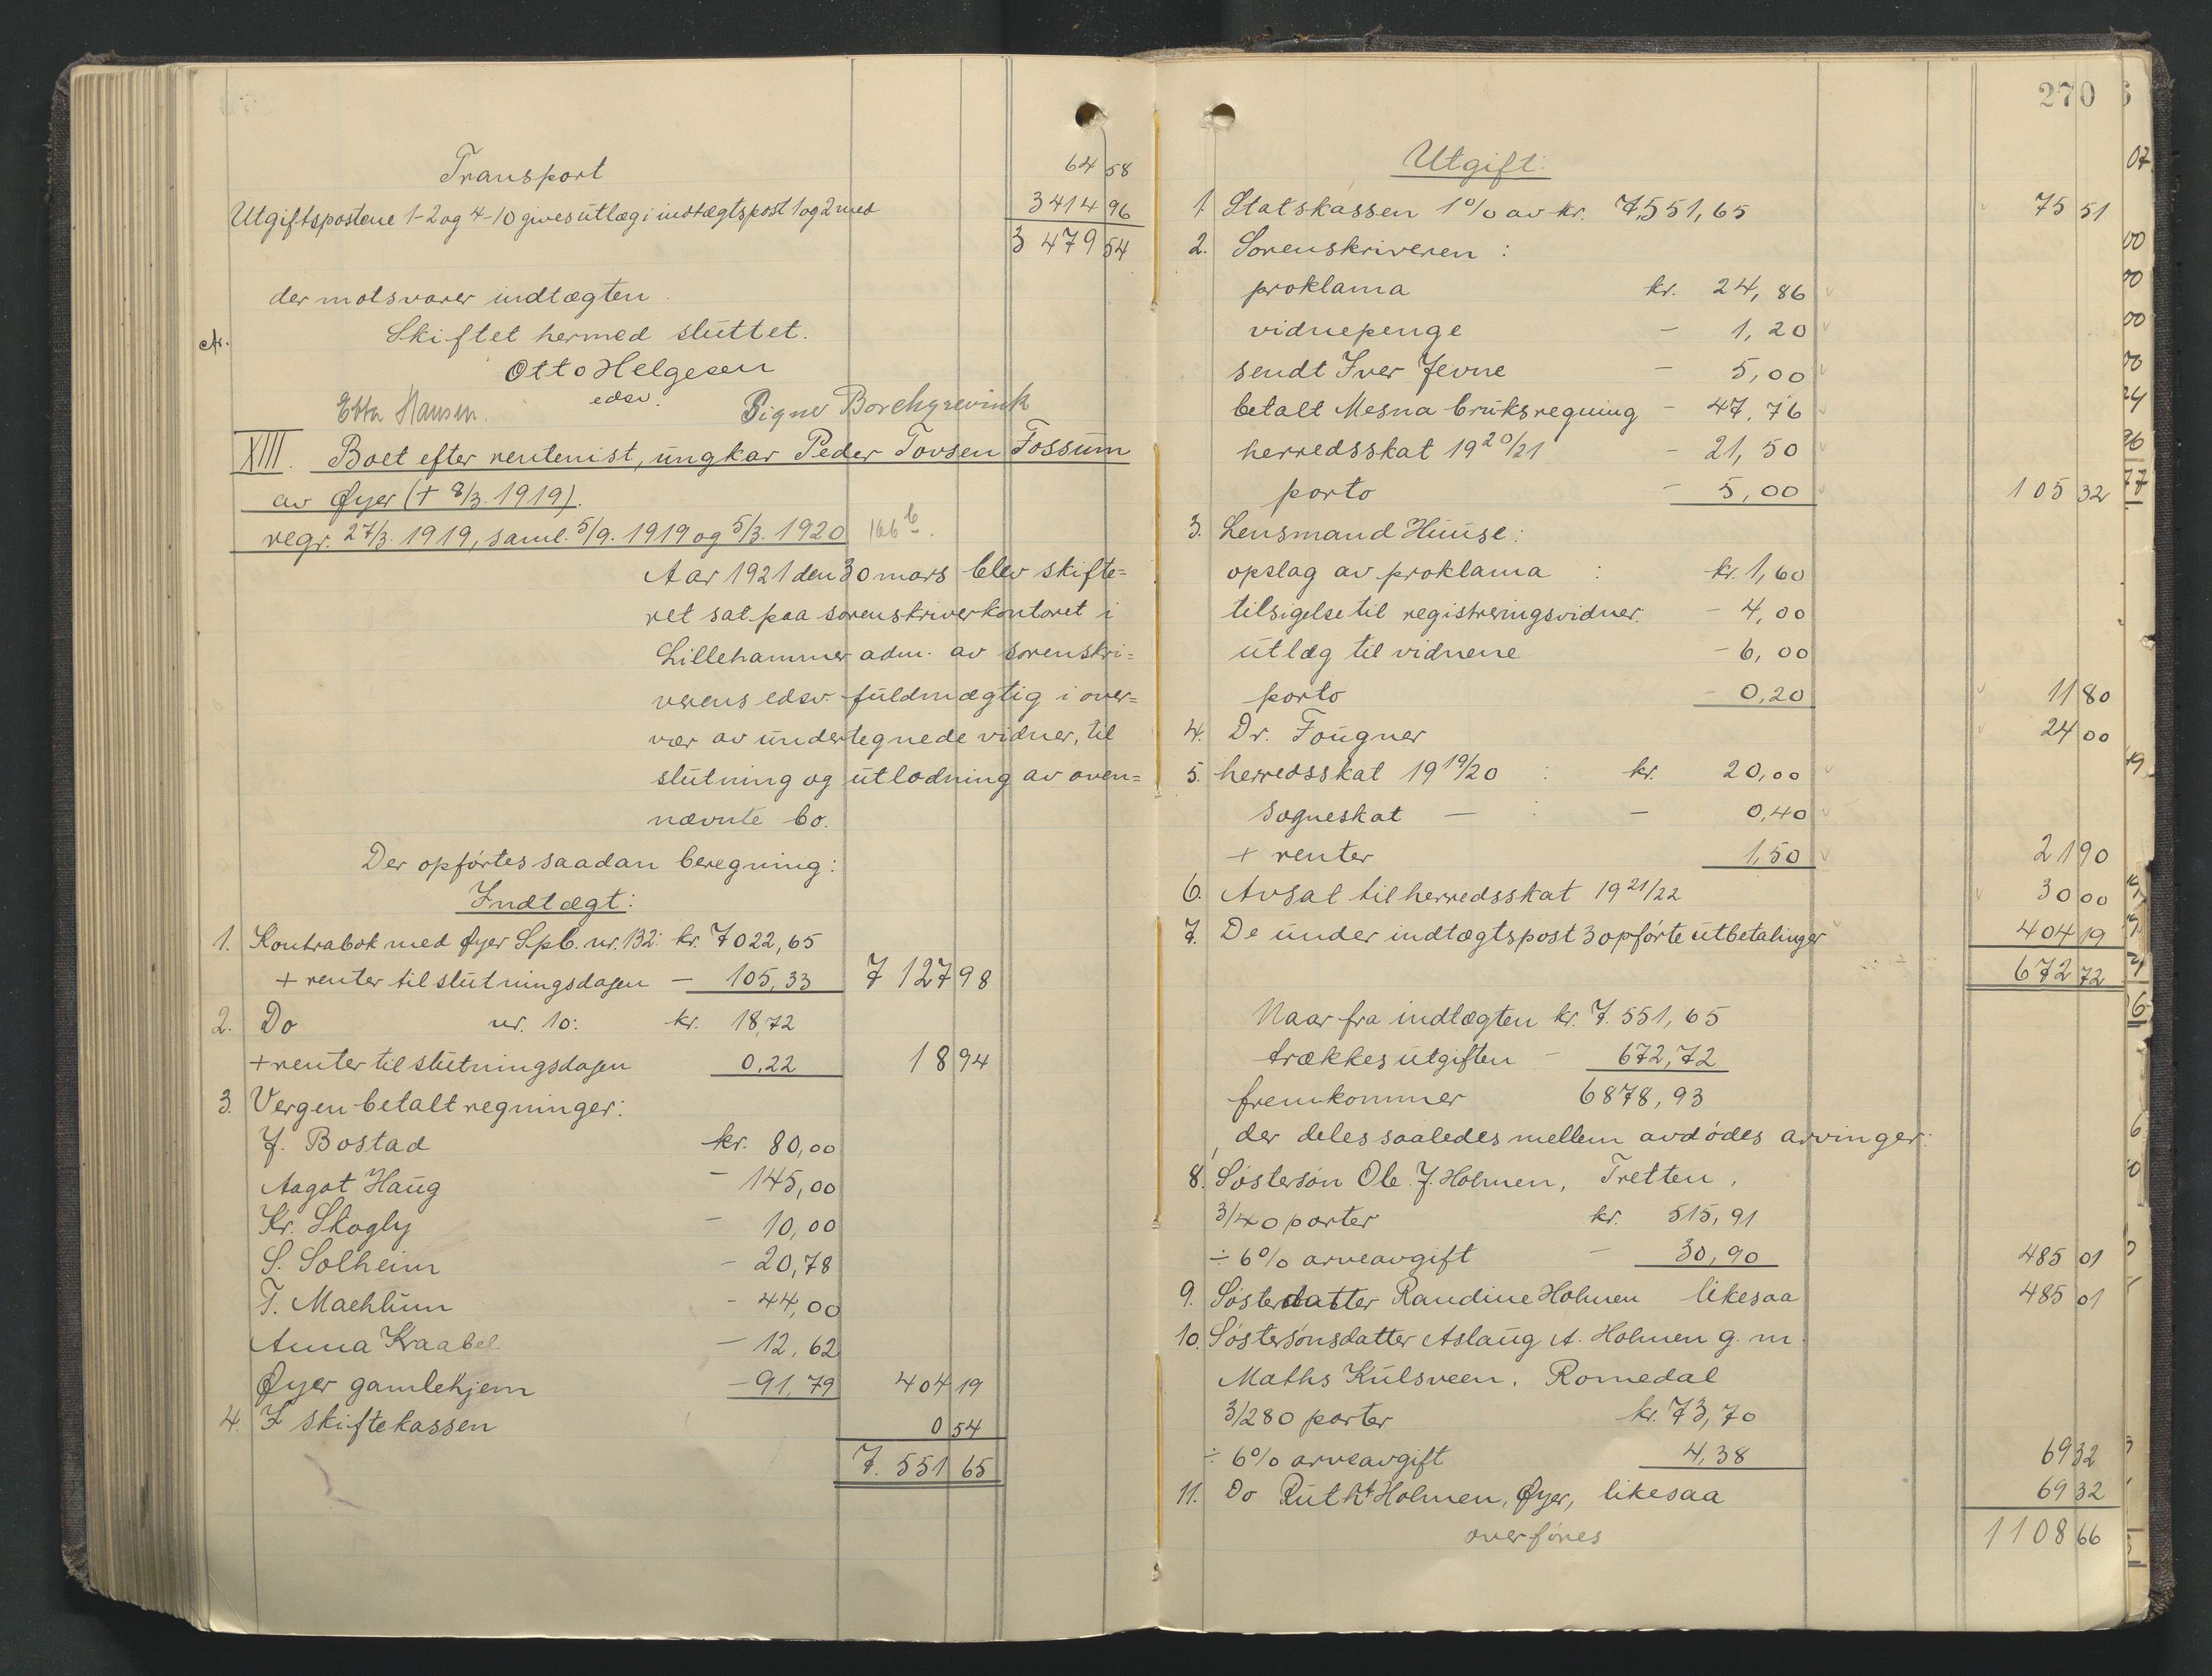 Transport 64 58
Utgiftspostene 1-2 og 4-10 gives utlæg i indtægtspost 1 og 2 med 3414 96
3 479 54
der motsvarer indtægten.
Skiftet hermed sluttet.
Otto Helgesen
edsv.
Ebba Hansen. Signe Borchgrevink
XIII. Boet efter rentenist, ungkar Peder Torsen Fossum
av Øyer († 8/3. 1919).
regr. 27/3. 1919, saml. 5/9. 1919 og 5/3. 1920 166 b.
Aar 1921 den 30 mars blev skifte=
ret sat paa sorenskriverkontoret i
Lillehammer adm. av sorenskri=
verens edsv. fuldmægtig i over=
vær av undertegnede vidner, til
slutning og utlodning av oven=
nævnte bo.
Der opførtes saadan beregning:
Indtægt:
1. Kontrabok med Øyer Spb. nr. 132: kr. 7022,65
+ renter til slutningsdagen — 105,33 7 127 98
2. Do nr. 10: kr. 18,72
+ renter til slutningsdagen 0,22 18 94
3. Vergen betalt regninger:
J. Bostad kr. 80,00
Aagot Haug - 145,00
Kr. Skogly - 10,00
S. Solheim - 20,78
T. Maehlum - 44,00
Anna Kraabel - 12,62
Øyer gamlehjem - 91,79 404 19
4. I skiftekassen 0 54
7.551 65
270
Utgift:
1. Statskassen 1% av kr. 7,551,65 75 51
2. Sorenskriveren:
proklama kr. 24,86
vidnepenge - 1,20
sendt Iver Jevne - 5,00
betalt Mesna bruksregning - 47,76
herredsskat 19 20/21 - 21,50
porto - 5,00 105 32
3. Lensmand Huuse:
opslag av proklama : kr. 1,60
tilsigelse til registreringsvidner. - 4,00
utlæg til vidnene - 6,00
porto - 0,20 11 80
4. Dr. Fougner 24 00
5. herredsskat 19 19/20 : kr. 20,00
sogneskat — : — 0,40
+ renter 1,50 21 90
6. Avsat til herredsskat 19 21/22 30 00
7. De under indtægtspost 3 opførte utbetalinger 404 19
672 72
Naar fra indtægten kr. 7.551,65
trækkes utgiften - 672,72
fremkommer 6878,93
der deles saaledes mellem avdødes arvinger:
8. Søstersøn Ole J. Holmen, Tretten,
3/40 parter kr. 515,91
÷ 6% arveavgift - 30,90 485 01
9. Søsterdatter Randine Holmen likesaa 485 01
10. Søstersønsdatter Aslaug A. Holmen g. m.
Maths Kulsveen, Romedal
3/280 parter kr. 73,70
÷ 6% arveavgift 4,38 69 32
11. Do Ruth Holmen, Øyer, likesaa 69 32
overføres 1108 66